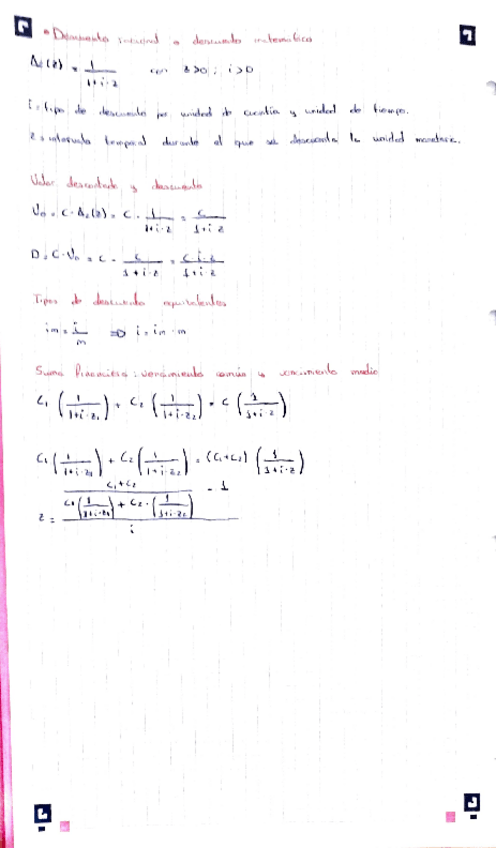 • Descuento racional o descuento matemático
A₂(z) = 1/(1+i·z) con z>0 ; i>0
i: tipo de descuento por unidad de cuantía y unidad de tiempo.
z: intervalo temporal durante el que se descuenta la unidad monetaria.
Valor descontado y descuento
V₀ = C·A₂(z) = C · 1/(1+i·z) = C/(1+i·z)
D = C-V₀ = C - C/(1+i·z) = C·i·z/(1+i·z)
Tipos de descuento equivalentes
im = i/m ⇒ i = im·m
Suma financiera: vencimiento común y vencimiento medio
C₁ (1/(1+i·z₁)) + C₂ (1/(1+i·z₂)) = C (1/(1+i·z))
C₁ (1/(1+i·z₁)) + C₂ (1/(1+i·z₂)) = (C₁+C₂) (1/(1+i·z))
z = ((C₁+C₂)/(C₁(1/(1+i·z₁)) + C₂·(1/(1+i·z₂))) - 1)/i